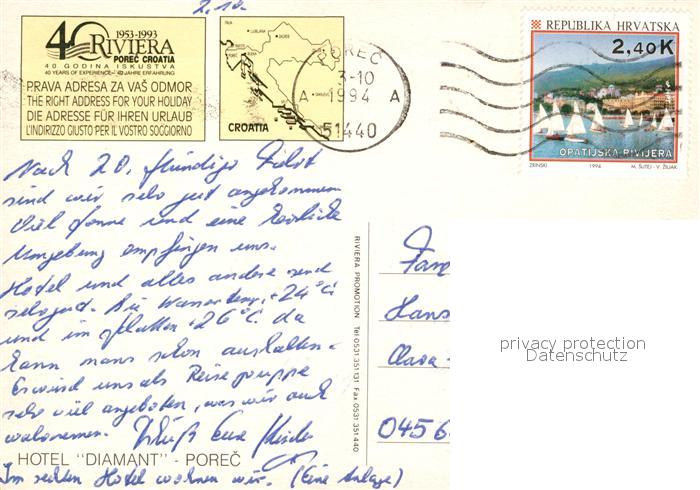 2.10.
1953-1993
40 RIVIERA
POREČ CROATIA
40 GODINA ISKUSTVA
40 YEARS OF EXPERIENCE - 40 JAHRE ERFAHRUNG
PRAVA ADRESA ZA VAŠ ODMOR
THE RIGHT ADDRESS FOR YOUR HOLIDAY
DIE ADRESSE FÜR IHREN URLAUB
L'INDIRIZZO GIUSTO PER IL VOSTRO SOGGIORNO
CROATIA
POREČ
3-10
A 1994 A
51440
REPUBLIKA HRVATSKA
2,40K
OPATIJSKA RIVIJERA
ZRINSKI 1994 M. ŠUTEJ - V. ŽILJAK
Nach 20. stündiger Fahrt
sind wir sehr gut angekommen
Viel Sonne und eine herrliche
Umgebung empfingen uns.
Hotel und alles andere sind
sehr gut. Die Wassertemp. +24°C
und im Schatten +26°C. da
kann mans schon aushalten.
Es wird uns als Reisegruppe
sehr viel angeboten, was wir auch
wahrnemen. Grüß Eure
HOTEL "DIAMANT" - POREČ
Im rechten Hotel wohnen wir. (Eine Anlage)
RIVIERA PROMOTION Tel 0531 351 131 Fax 0531 351 440
Fam
Hans
Clara
0456
privacy protection
Datenschutz